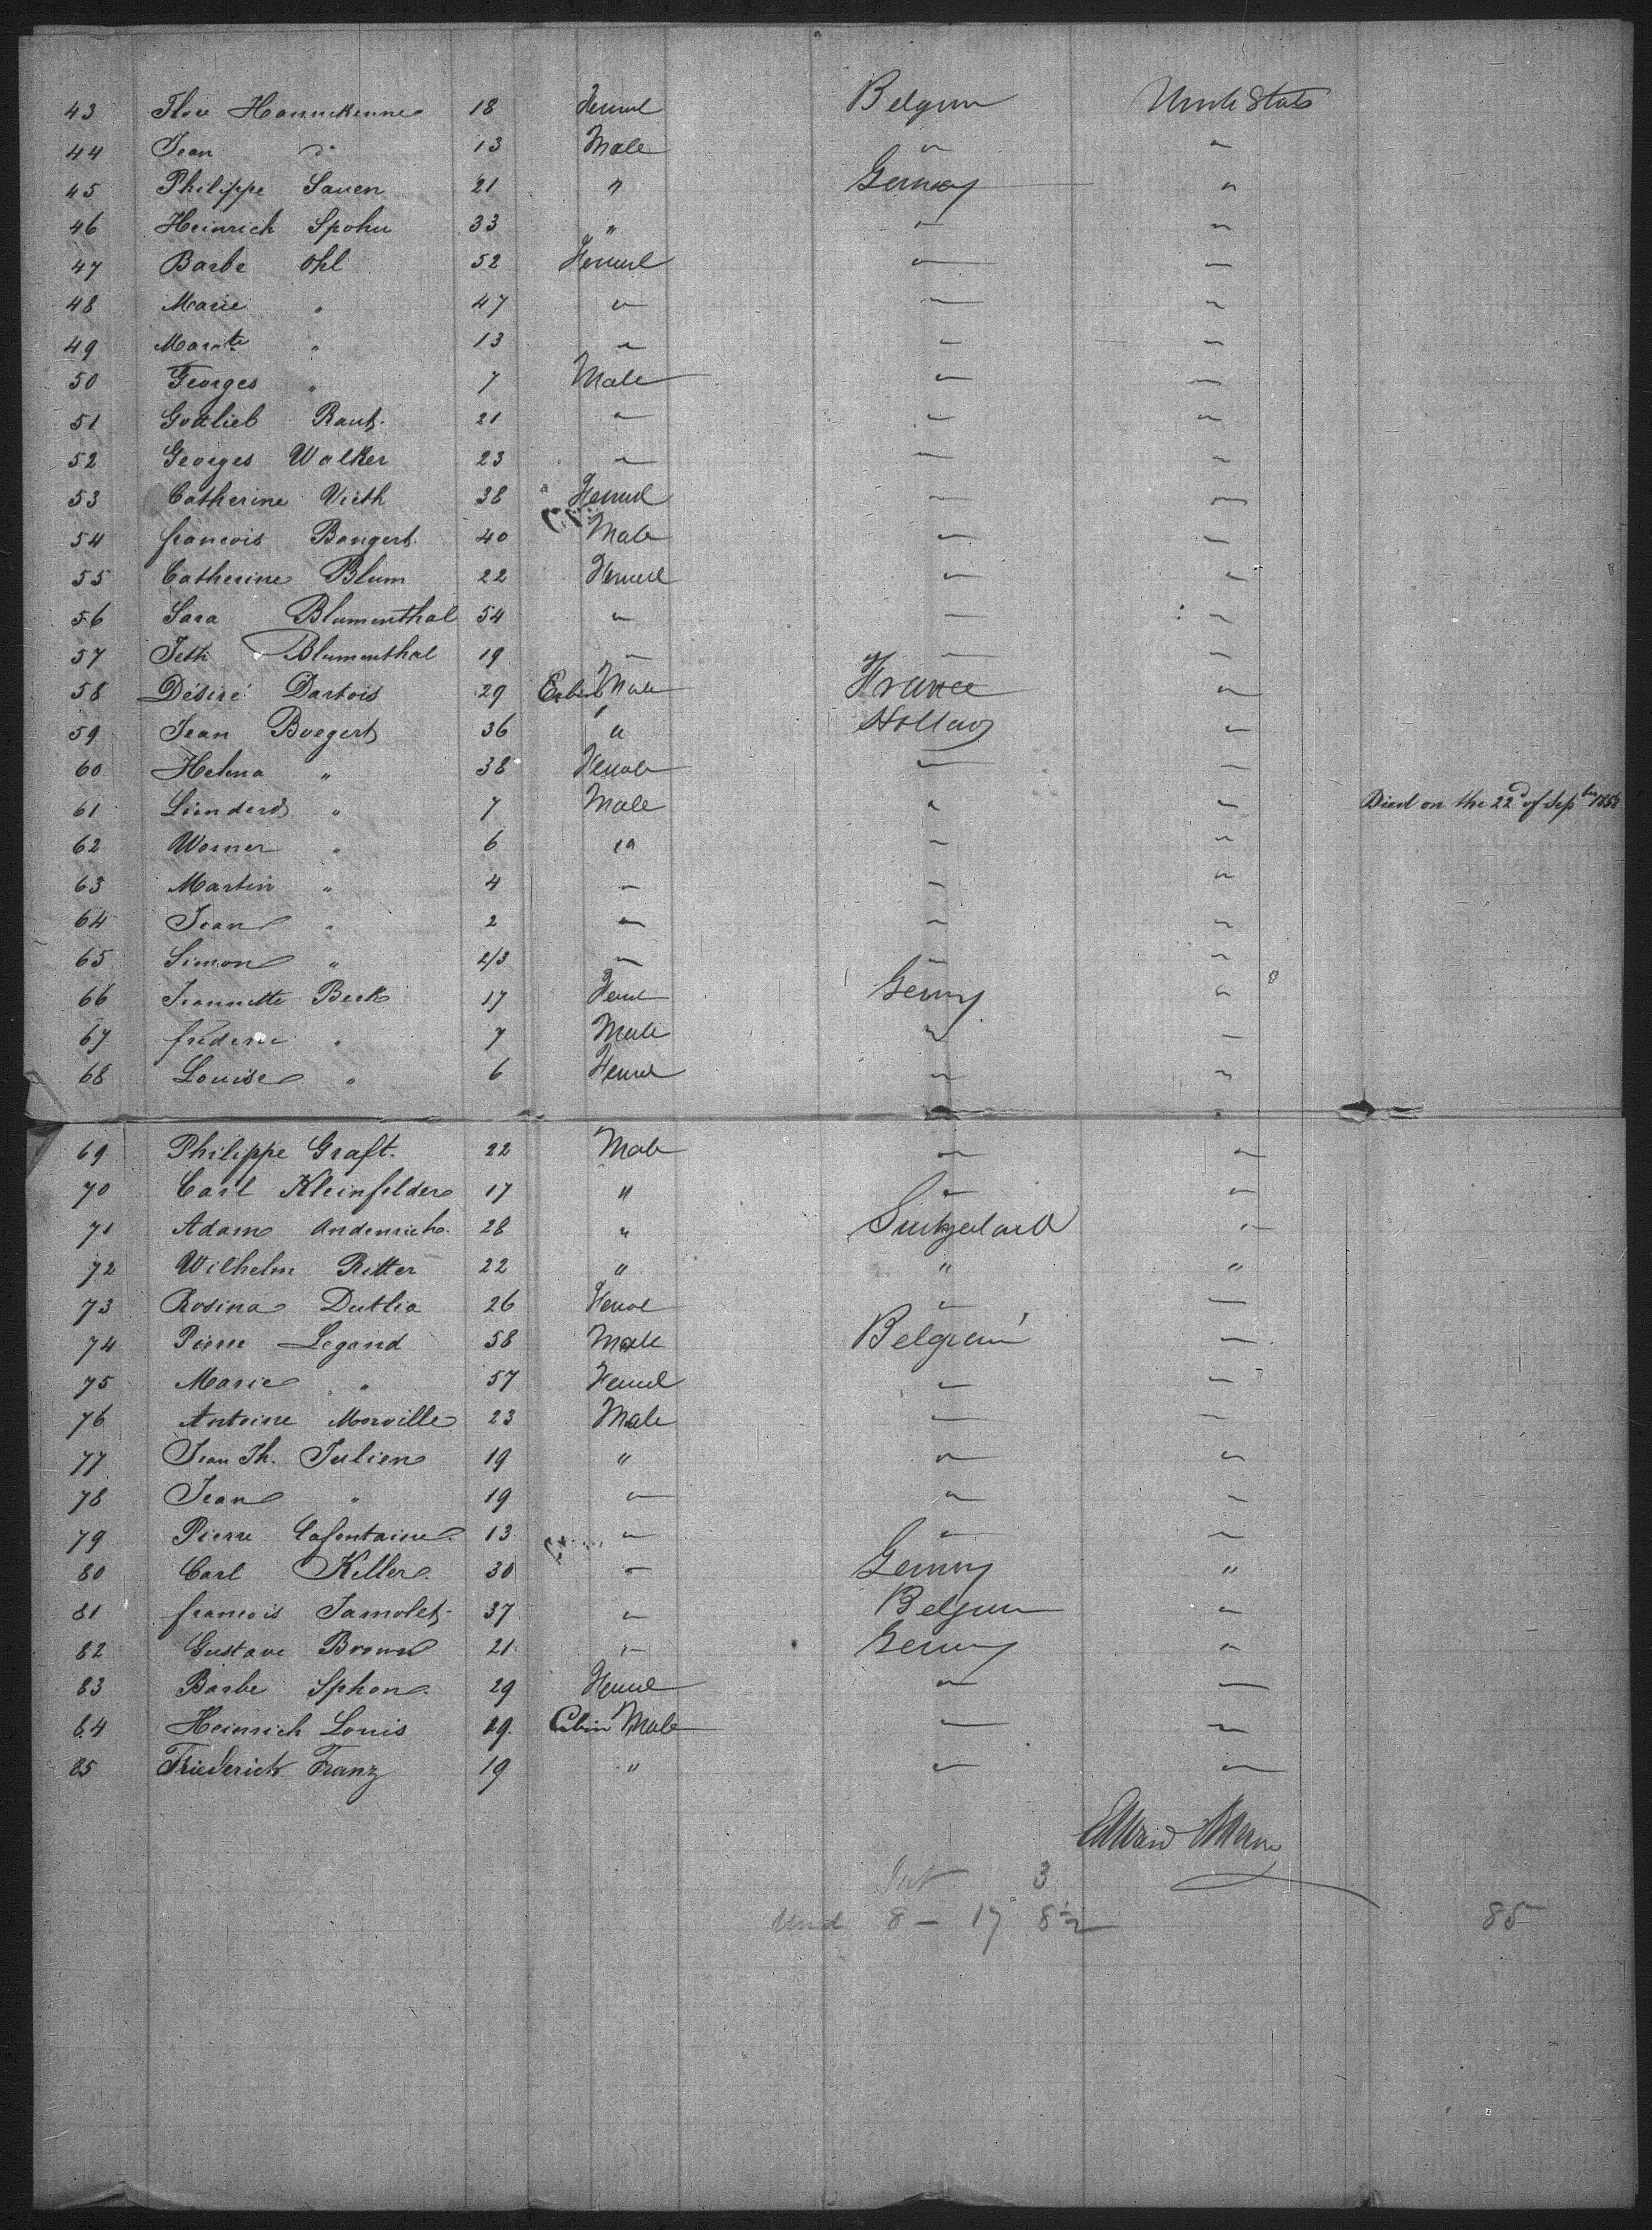 43 Flore Hannickenne 18 Femal Belgium Unite States
44 Jean do 13 Male " "
45 Philippe Sauen 21 " Germay "
46 Heinrich Spohn 33 " " "
47 Barbe Ohl 52 Femal " "
48 Marie " 47 " " "
49 " 13 " " "
50 Georges " 7 Male " "
51 Gottlieb Raub. 21 " " "
52 Georges Walker 23 " " "
53 Catherine Vieth 38 Femal " "
54 francois Bangert 40 Male " "
55 Catherine Blum 22 Femal " "
56 Sara Blumenthal 54 " " "
57 Jeth Blumenthal 19 " " "
58 Désiré Dartois 29 Cabin Male France "
59 Jean Boegert 36 " Holland "
60 Helena " 38 Female " "
61 Lienderd " 7 Male " " Died on the 22d of Sepber
62 Worner " 6 " " "
63 Martin " 4 " " "
64 Jean " 2 " " "
65 Simon " 2/3 " " "
66 Jeannette Beck 17 Femal Germy "
67 frederic " 7 Male " "
68 Louise " 6 Femal " "
69 Philippe Graft. 22 Male " "
70 Carl Kleinfelder 17 " " "
71 Adam 28 " Switzerland "
72 Wilhelm Ritter 22 " " "
73 Rosina Dutlia 26 Female " "
74 Pierre Legand 58 Male Belgium "
75 Marie " 57 Femal " "
76 Antoine Morville 23 Male " "
77 Jean Th. Julien 19 " " "
78 Jean " 19 " " "
79 Pierre Lafontaine 13 " " "
80 Carl Keller 30 " Germny "
81 francois Jamolet 37 " Belgium "
82 Gustave Brown 21 " Germny "
83 Barbe Sphon 29 Femal " "
84 Heinrich Louis 29 Cabin Male " "
85 Friederich Franz 19 " " "
Edward
3
Und 8 – 17 8½ 85